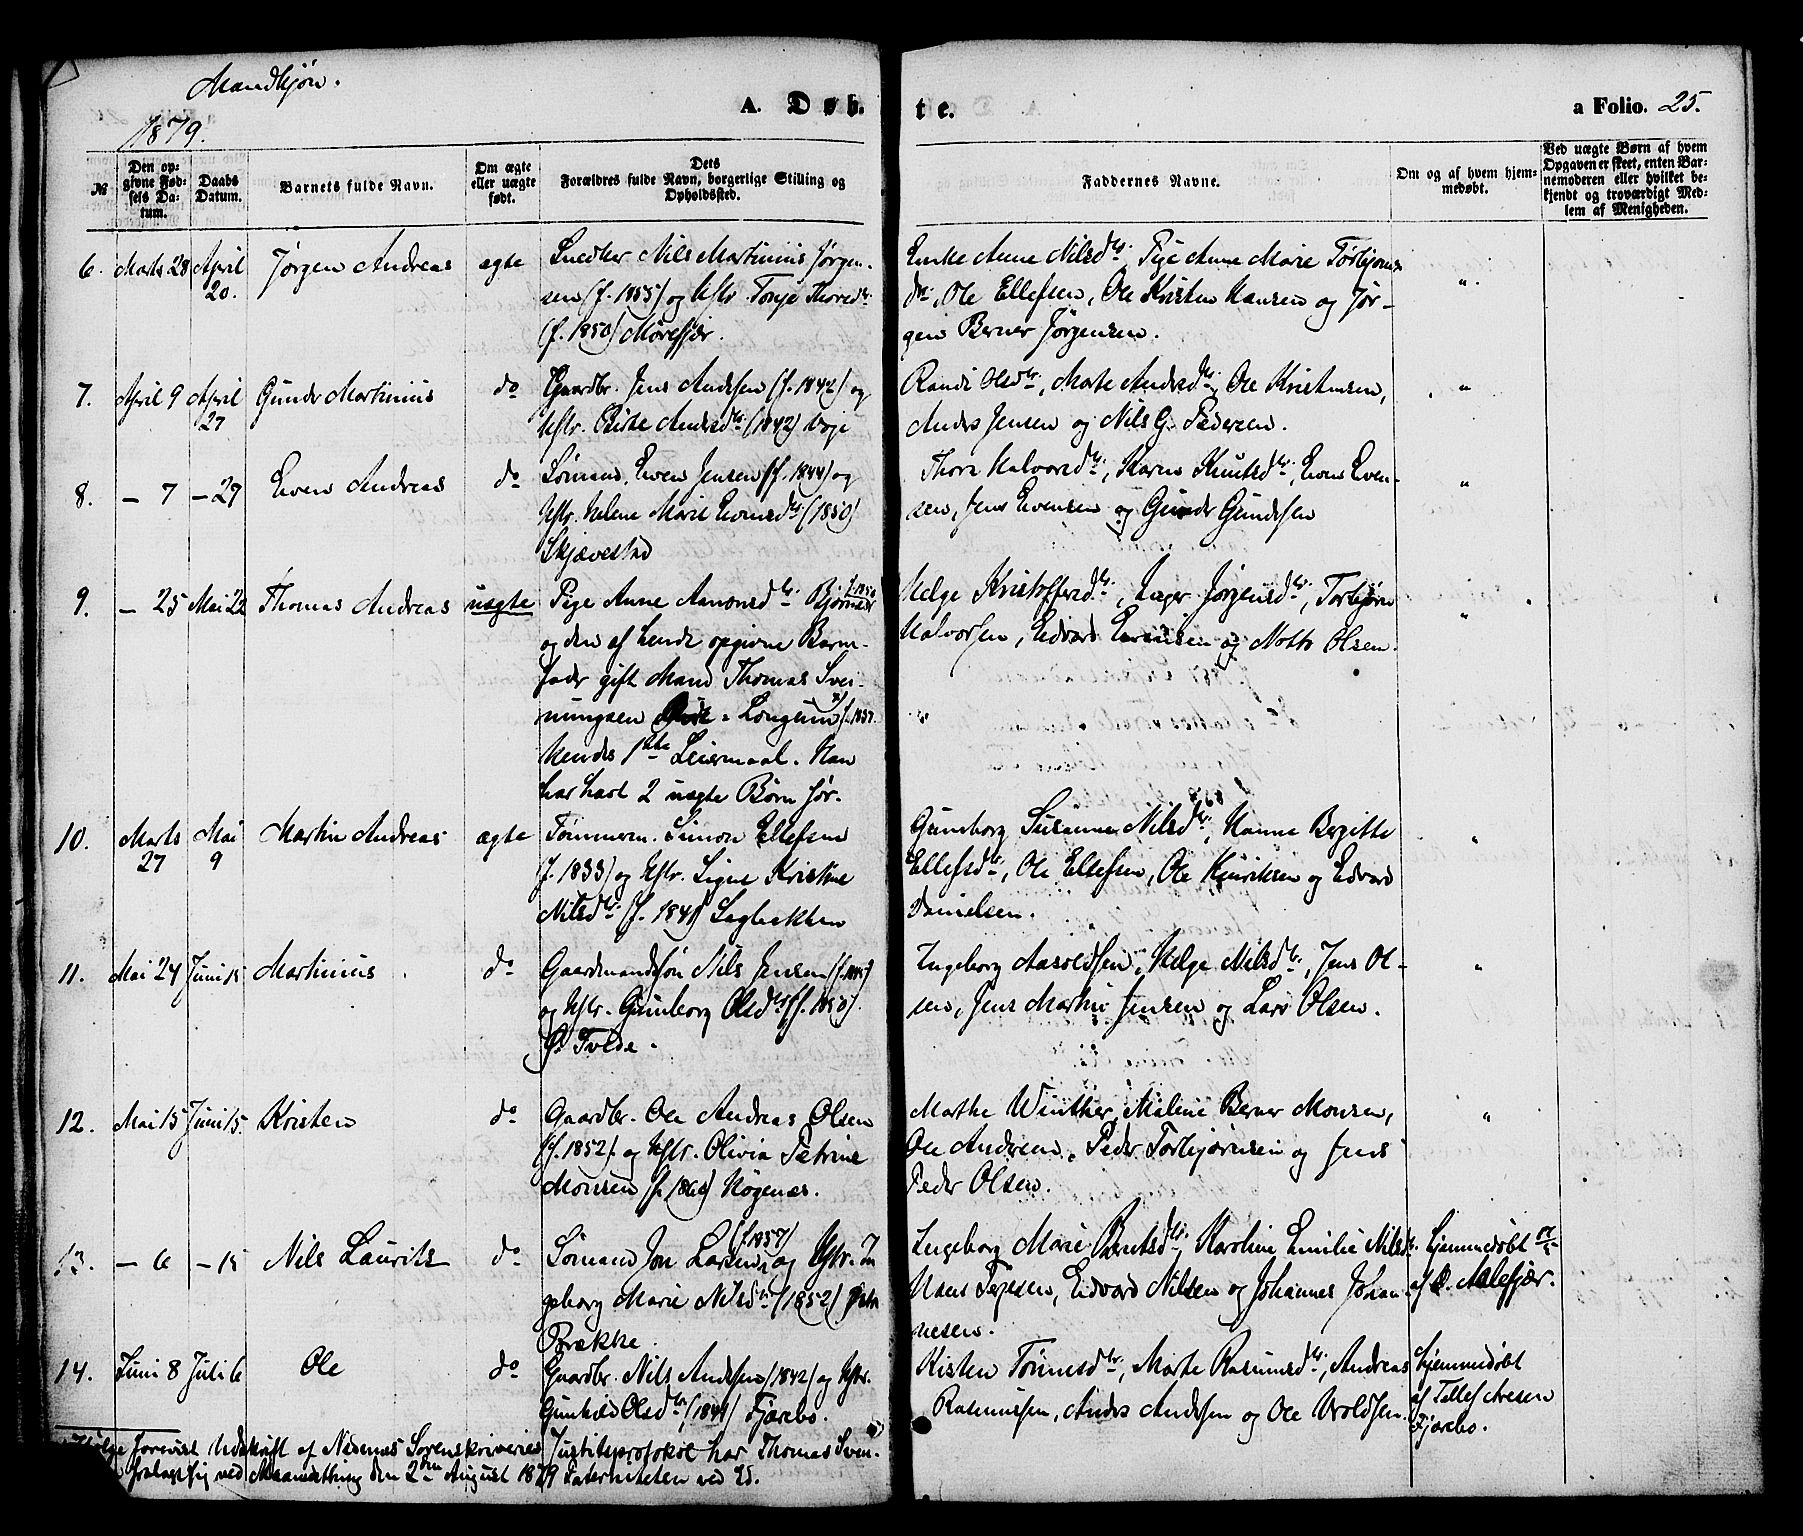 Mandkjøn.
A. Døb-
te.
a Folio. 25.
1879.
№
Den op-
givne Fød-
sels Da-
tum.
Daabs
Datum.
Barnets fulde Navn.
Om ægte
eller uægte
født.
Dets
Forældres fulde Navn, borgerlige Stilling og
Opholdssted.
Faddernes Navne.
Om og af hvem hjem-
medøbt.
Ved uægte Børn af hvem
Opgaven er skeet, enten Bar-
nemoderen eller hvilket be-
kjendt og troværdigt Med-
lem af Menigheden.
6. Marts 28 April 20. Jørgen Andreas ægte
Snedker Nils Martinius Jørgen-
sen (f. 1853) og Hstr. Tonje Thoresdtr.
(f. 1850) Morefjær.
Enke Anne Nilsdtr, Pige Anne Marie Torbjørns-
dtr, Ole Ellefsen, Ole Kristen Hansen og Jør-
gen Berner Jørgensen.
"
7. April 9 April 27 Gunder Martinius do
Gaardbr. Jens Andersen (f. 1842) og
Hstr. Birte Andersdtr (1842) Voje
Randi Olsdtr, Marte Andersdtr, Ole Kristensen,
Anders Jensen og Nils G. Pedersen.
"
8. – 7 – 27 Even Andreas do
Sømand, Even Jensen (f. 1844) og
Hstr. Helene Marie Evensdtr (1850)
Skjævestad
Thore Halvorsdtr, Karen Knutsdtr, Even Even-
sen, Jens Evensen og Gunder Gundersen
"
9. – 25 Mai 22 Thomas Andreas uægte
Pige Anne Aanonsdtr Bjørnes f. 1850
og den af hende opgivne Barn-
fader gift Mand Thomas Svei-
nungsen Longum f. 1837.
Hendes 1ste Leiermaal. Han
har havt 2 uægte Børn før.
Helge Kristoffersdtr, Inger Jørgensdtr, Torbjørn
Halvorsen, Edvard Evensen og Notto Olsen.
"
"
10. Marts 27 Mai 9 Martin Andreas ægte
Tømmerm. Simon Ellefsen
(f. 1833) og Hstr. Signe Kristine
Nilsdtr (f. 1841) Lagbakken
Gunborg Susanne Nilsdtr, Hanne Bergitte
Ellefsdtr, Ole Ellefsen, Ole Henriksen og Edvard
Danielsen.
"
11. Mai 24 Juni 15 Martinius do
Gaardmandssøn Nils Jensen
og Hstr. Gunborg Olsdtr (f. 1850).
Ø. Tvede.
Ingeborg Aasoldsen, Helge Nilsdtr, Jens Ol-
sen, Jens Martin Jensen og Lars Olsen.
"
12. Mai 15 Juni 15. Kristen do
Gaardbr. Ole Andreas Olsen
(f. 1852). og Hstr. Olivia Petrine
Monsen Høgenæs.
Marthe Winther, Maline Berner Monsen,
Ole Andersen, Peder Torbjørnsen og Jens
Peder Olsen.
"
13. – 6 – 15 Nils Laurits do
Sømand Jon Larsen (f 1857) og Hstr. In
geborg Marie Nilsdtr (1852)
Brække.
Ingeborg Marie Berntsdtr, Karoline Emilie Nilsdtr.
Hans Terjesen, Edvard Nilsen og Johannes Johan-
nesen.
hjemmedøbt
af O. Nalefjær.
14. Juni 8 Juli 6 Ole do
Gaardbr. Nils Andersen (1842) og Hstr.
Gunhild Olsdtr, (1841) Fjærebo.
Kisten Tønnesdtr, Marte Rasmusdtr, Andreas
Rasmussen, Anders Andersen og Ole Uvoldsen.
hjemmedøbt
af Tellef Aresen
Fjærebo.
Ifølge forevist Udskrift af Nedenæs Sorenskriveries Justitsprotokol har Thomas Svei-
fralagt sig ved Maanedsthing den 2den August 1879 Paterniteten ved Ed.